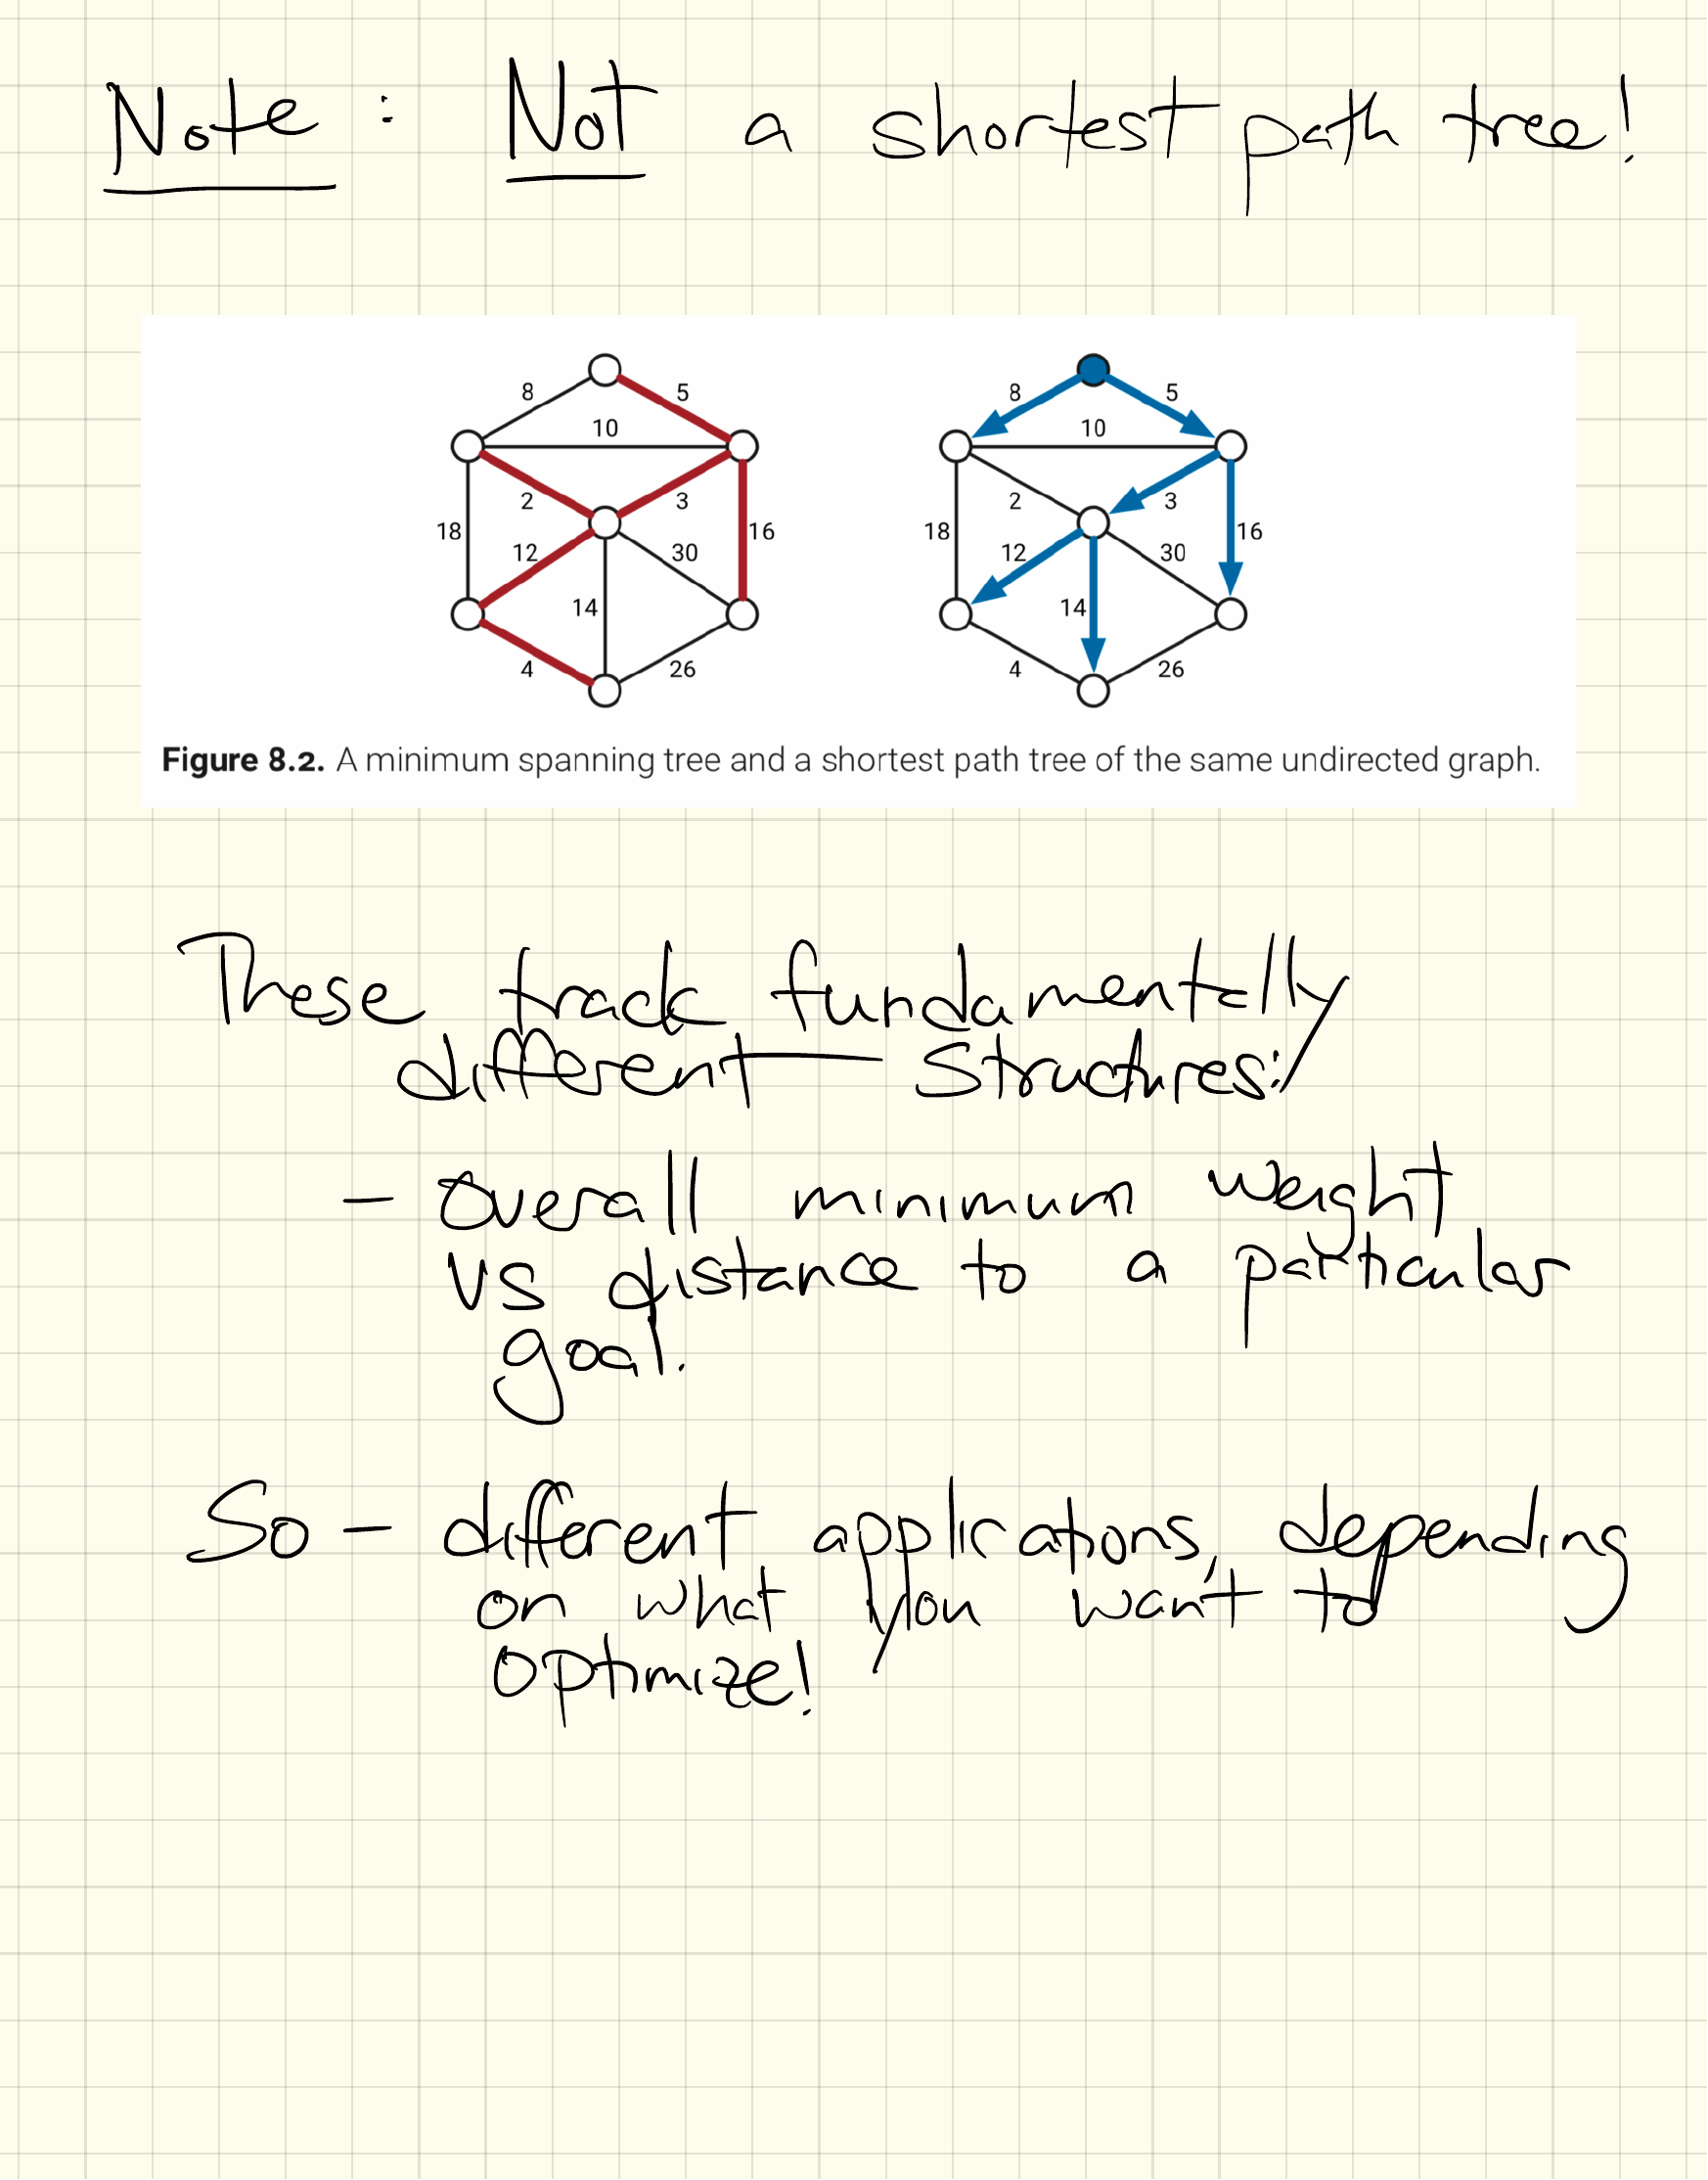 Note: Not a shortest path tree!
8 5 8 5
10 10
2 3 2 3
18 12 30 16 18 12 30 16
14 14
4 26 4 26
Figure 8.2. A minimum spanning tree and a shortest path tree of the same undirected graph.
These track fundamentally
different structures:
- overall minimum weight
vs distance to a particular
goal.
So - different applications, depending
on what you want to
optimize!